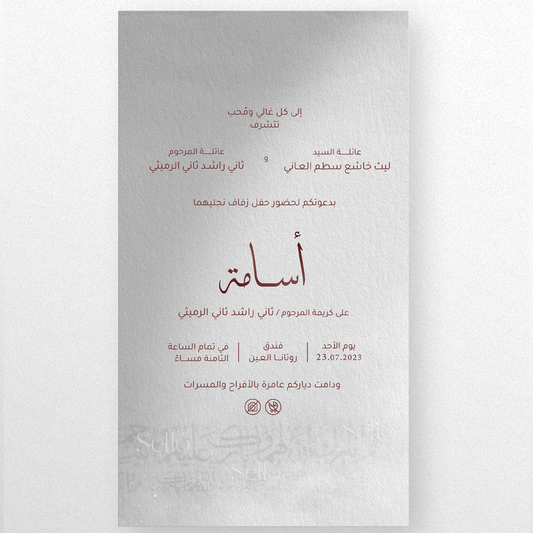 إلى كل غالي ومُحب
تتشرف
عائلــــة السيد
ليث خاشع سطم العاني
و
عائلــــة المرحوم
ثاني راشد ثاني الرميثي
بدعوتكم لحضور حفل زفاف نجليهما
أسامة
على كريمة المرحوم / ثاني راشد ثاني الرميثي
يوم الأحد
23.07.2023
فندق
روتانـا العـين
في تمام الساعة
الثامنة مســاءً
ودامت دياركم عامرة بالأفراح والمسرات